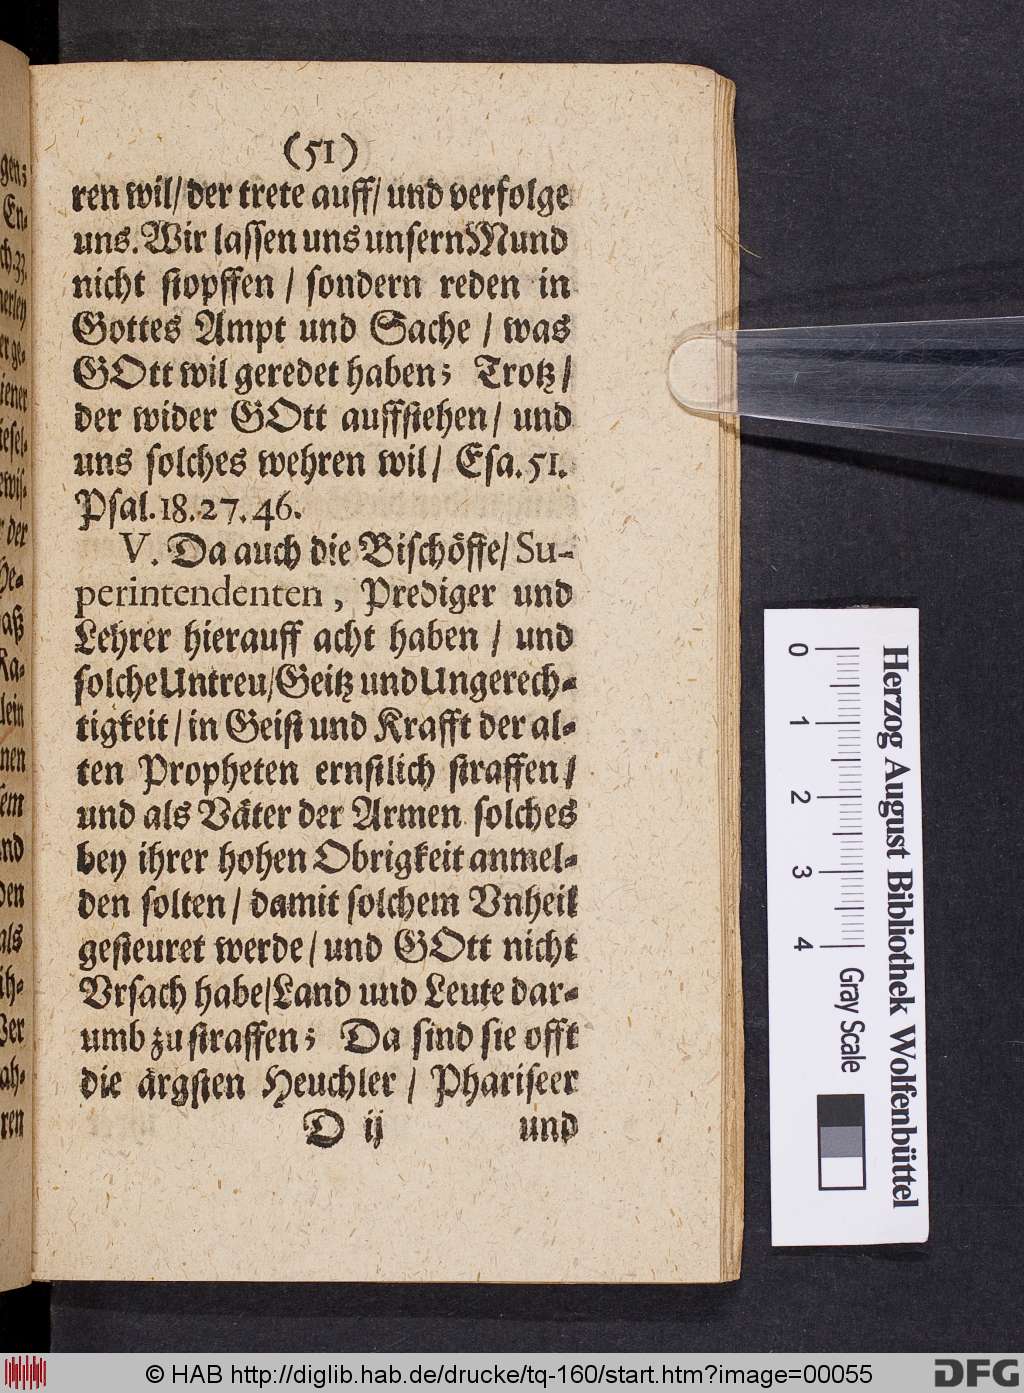 (51)
ren wil/ der trete auff/ und verfolge
uns. Wir lassen uns unsern Mund
nicht stopffen / sondern reden in
Gottes Ampt und Sache / was
GOtt wil geredet haben; Trotz /
der wider GOtt auffstehen / und
uns solches wehren wil / Esa. 51.
Psal. 18. 27. 46.
V. Da auch die Bischöffe / Su-
perintendenten, Prediger und
Lehrer hierauff acht haben / und
solche Untreu / Geitz und Ungerech-
tigkeit / in Geist und Krafft der al-
ten Propheten ernstlich straffen /
und als Väter der Armen solches
bey ihrer hohen Obrigkeit anmel-
den solten / damit solchem Vnheil
gesteuret werde / und GOtt nicht
Vrsach habe / Land und Leute dar-
umb zu straffen; Da sind sie offt
die ärgsten Heuchler / Phariseer
D ij und
gen;
En-
ch. 33.
er ge-
iener
iesel-
ewis-
der
He-
aß
Ka-
lein
nen
sem
nd
den
als
ih-
Ver
ah-
ren
0 1 2 3 4
Gray Scale
Herzog August Bibliothek Wolfenbüttel
© HAB http://diglib.hab.de/drucke/tq-160/start.htm?image=00055
DFG